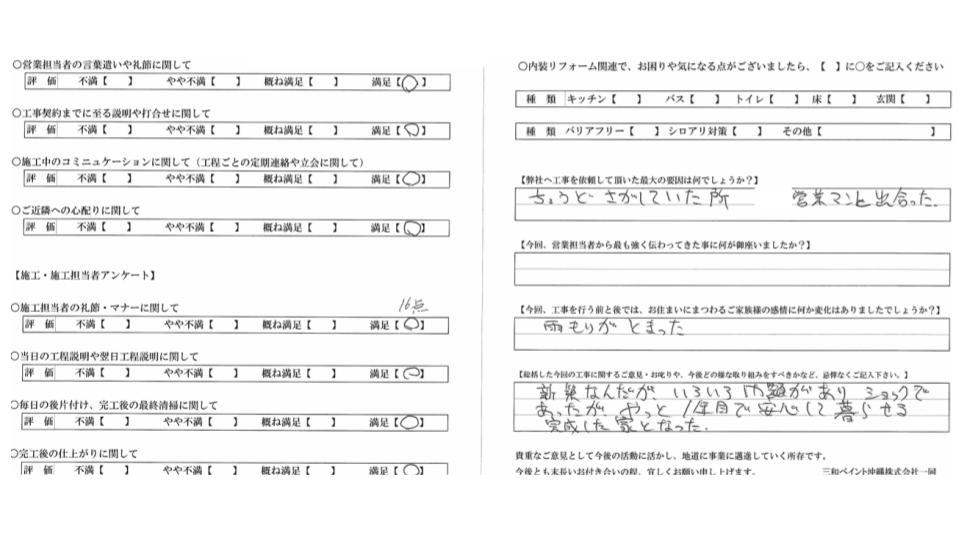 ○営業担当者の言葉遣いや礼節に関して
評 価 不満【 】 やや不満【 】 概ね満足【 】 満足【○】
○工事契約までに至る説明や打合せに関して
評 価 不満【 】 やや不満【 】 概ね満足【 】 満足【○】
○施工中のコミニュケーションに関して（工程ごとの定期連絡や立会に関して）
評 価 不満【 】 やや不満【 】 概ね満足【 】 満足【○】
○ご近隣への心配りに関して
評 価 不満【 】 やや不満【 】 概ね満足【 】 満足【○】
【施工・施工担当者アンケート】
○施工担当者の礼節・マナーに関して
16点
評 価 不満【 】 やや不満【 】 概ね満足【 】 満足【○】
○当日の工程説明や翌日工程説明に関して
評 価 不満【 】 やや不満【 】 概ね満足【 】 満足【○】
○毎日の後片付け、完工後の最終清掃に関して
評 価 不満【 】 やや不満【 】 概ね満足【 】 満足【○】
○完工後の仕上がりに関して
評 価 不満【 】 やや不満【 】 概ね満足【 】 満足【○】
○内装リフォーム関連で、お困りや気になる点がございましたら、【 】に○をご記入ください
種 類 キッチン【 】 バス【 】 トイレ【 】 床【 】 玄関【 】
種 類 バリアフリー【 】 シロアリ対策【 】 その他【 】
【弊社へ工事を依頼して頂いた最大の要因は何でしょうか？】
ちょうど さがしていた所 営業マンと出合った.
【今回、営業担当者から最も強く伝わってきた事に何が御座いましたか？】
【今回、工事を行う前と後では、お住まいにまつわるご家族様の感情に何か変化はありましたでしょうか？】
雨もりが とまった
【総括した今回の工事に関するご意見・お叱りや、今後どの様な取り組みをすべきかなど、忌憚なくご記入下さい。】
新築なんだが、いろいろ問題があり ショックで
あったが、やっと 1年目で安心して暮らせる
完成した家となった.
貴重なご意見として今後の活動に活かし、地道に事業に邁進していく所存です。
今後とも末長いお付き合いの程、宜しくお願い申し上げます。 三和ペイント沖縄株式会社一同